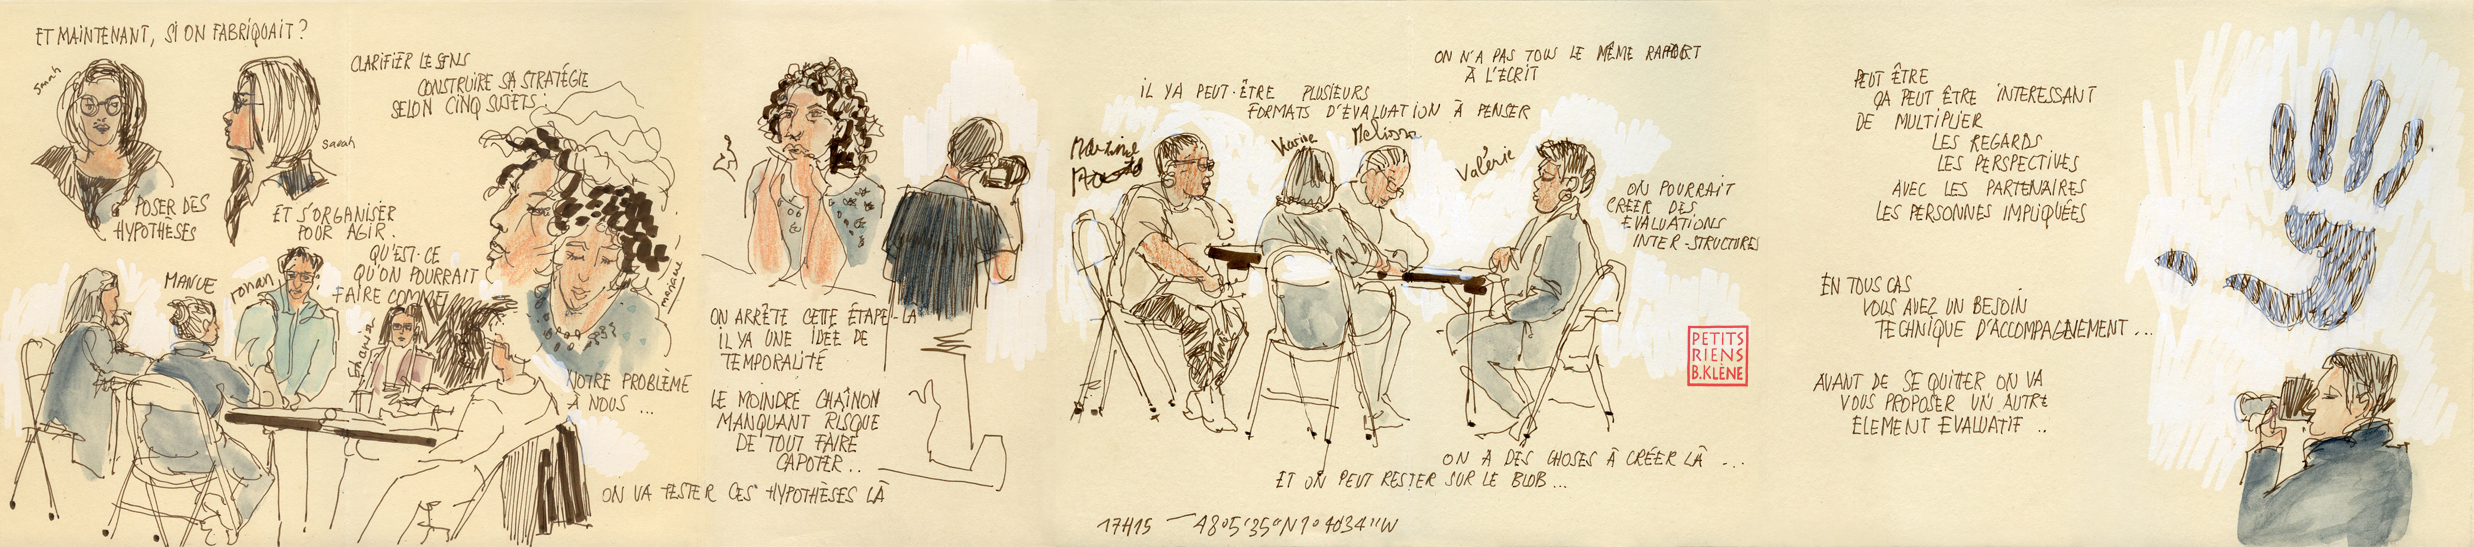 ET MAINTENANT, SI ON FABRIQUAIT ?
Sarah
Sarah
POSER DES
HYPOTHÈSES
CLARIFIER LE SENS
CONSTRUIRE SA STRATÉGIE
SELON CINQ SUJETS
ET S'ORGANISER
POUR AGIR.
QU'EST-CE
QU'ON POURRAIT
FAIRE COMME
MANUE
ronan
mariane
NOTRE PROBLÈME
À NOUS ...
ON ARRÊTE CETTE ÉTAPE-LÀ
IL Y A UNE IDÉE DE
TEMPORALITÉ
LE MOINDRE CHAÎNON
MANQUANT RISQUE
DE TOUT FAIRE
CAPOTER..
ON VA TESTER CES HYPOTHÈSES LÀ
IL Y A PEUT-ÊTRE PLUSIEURS
FORMATS D'ÉVALUATION À PENSER
ON N'A PAS TOUS LE MÊME RAPPORT
À L'ÉCRIT
Karine
Melissa
Valérie
ON POURRAIT
CRÉER DES
EVALUATIONS
INTER-STRUCTURES
PETITS
RIENS
B.KLÈNE
ON A DES CHOSES À CRÉER LÀ ...
ET ON PEUT RESTER SUR LE BLOB...
17H15
PEUT ÊTRE
ÇA PEUT ÊTRE INTERESSANT
DE MULTIPLIER
LES REGARDS
LES PERSPECTIVES
AVEC LES PARTENAIRES
LES PERSONNES IMPLIQUÉES
EN TOUS CAS
VOUS AVEZ UN BESOIN
TECHNIQUE D'ACCOMPAGNEMENT...
AVANT DE SE QUITTER ON VA
VOUS PROPOSER UN AUTRE
ELEMENT EVALUATIF ..